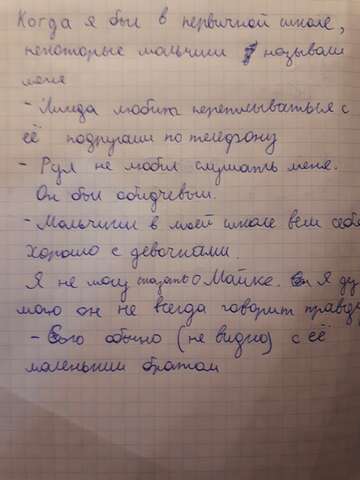 Когда я был в первичной школе,
некоторые мальчики называли
меня
- Линда любить переписываться с
её подругами по телефону
- Рул не любил слушать меня.
Он был обидчевый.
- Мальчики в моей школе вели себя
хорошо с девочками.
Я не могу сказать о Майке. Я ду
маю он не всегда говорит правду
- Его обычно (не видно) с её
маленьким братом